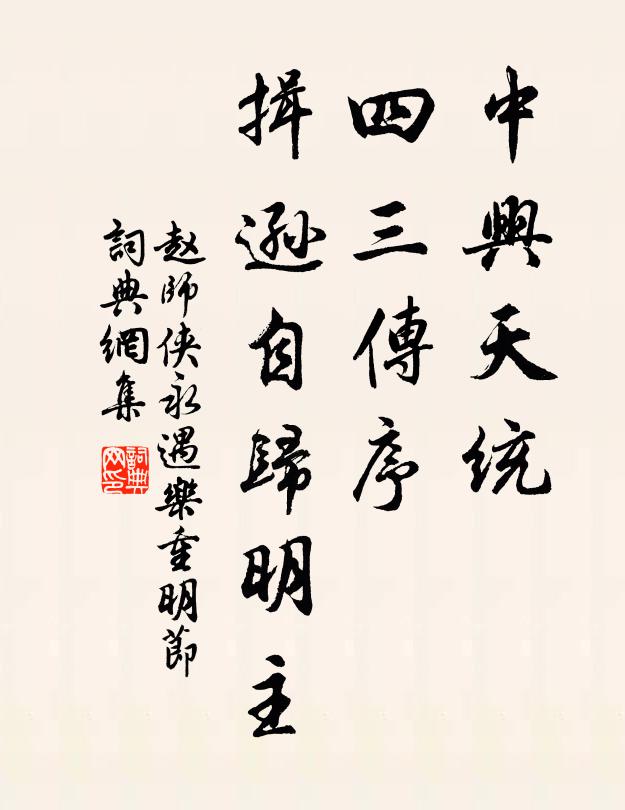 中興天統
四三傳序
揖遜自歸明主
赵師侠永遇樂重明節
詞典網集
詞典网印